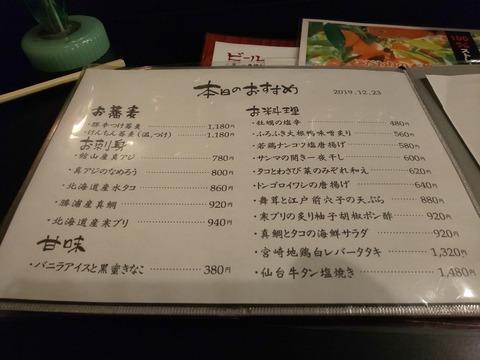 ビール
本日のおすすめ
2019.12.23
お蕎麦
・豚辛つけ蕎麦 1,180円
・けんちん蕎麦(温,つけ) 1,180円
お刺身
・館山産真アジ 780円
・真アジのなめろう 800円
・北海道産水タコ 860円
・勝浦産真鯛 920円
・北海道産寒ブリ 940円
甘味
・バニラアイスと黒蜜きなこ 380円
お料理
・牡蠣の塩辛 480円
・ふろふき大根鴨味噌炙り 560円
・若鶏ナンコツ塩唐揚げ 580円
・サンマの開き一夜干し 600円
・タコとわさび菜のみぞれ和え 620円
・トンゴロイワシの唐揚げ 640円
・舞茸と江戸前穴子の天ぷら 880円
・寒ブリの炙り柚子胡椒ポン酢 920円
・真鯛とタコの海鮮サラダ 920円
・宮崎地鶏白レバータタキ 1,320円
・仙台牛タン塩焼き 1,480円